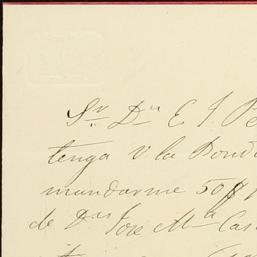 Sr. Dn E. J. Pe
tenga V la Bond
mandarme 50 ff
de Das Jose Ma Cas